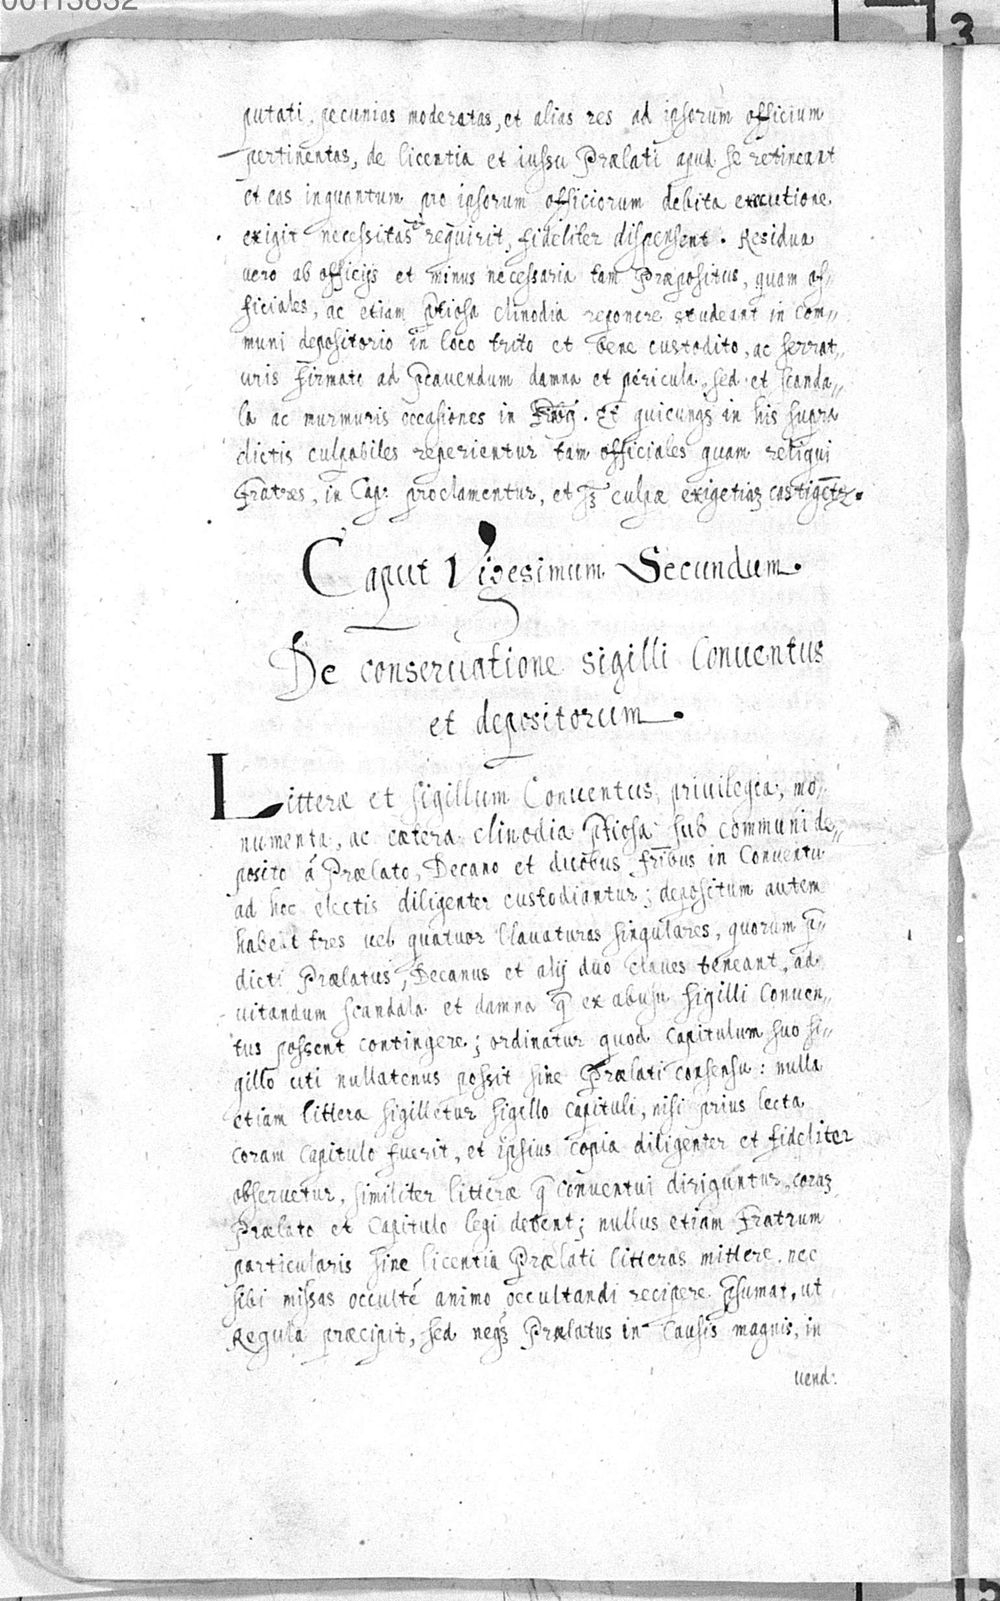 00113832
3
putati, pecunias moderatas, et alias res ad ipsorum officium
pertinentas, de licentia et iussu Prælati apud se retineant
et eas inquantum pro ipsorum officiorum debita executione
exigit necessitas et requirit, fideliter dispensent. Residua
uero ab officijs et minus necessaria tam Præpositus, quam of„
ficiales, ac etiam p̄tiosa clinodia reponere studeant in Com„
muni depositorio in loco trito et bene custodito, ac serrat„
uris firmato ad p̄cauendum damna et pericula, sed et scanda„
la ac murmuris occasiones in . Et quicunqꝫ in his supra
dictis culpabiles reperientur tam officiales quam reliqui
Fratres, in Cap: proclamentur, et culpæ exigentiaꝫ castigent̄.
Caput Vigesimum Secundum.
De conseruatione sigilli Conuentus
et depositorum.
Litteræ et sigillum Conuentus, priuilegia, mo„
numenta, ac cætera clinodia p̄tiosa sub communi de„
posito á Prælato, Decano et duobus fr̄ibus in Conuentu
ad hoc electis diligenter custodiantur; depositum autem
habeat tres uel quatuor Clauaturas singulares, quorum p̄„
dicti Prælatus, Decanus et alij duo claues teneant, ad
uitandum scandala et damna q̄ ex abusu sigilli Conuen„
tus possent contingere; ordinatur quod Capitulum suo si„
gillo uti nullatenus possit sine Prælati consensu: nulla
etiam littera sigilletur sigillo capituli, nisi prius lecta
coram Capitulo fuerit, et ipsius copia diligenter et fideliter
obseruetur, similiter litteræ q̄ Conuentui diriguntur, coraꝫ
Prælato et Capitulo legi debent; nullus etiam Fratrum
particularis sine licentia Prælati litteras mittere, nec
sibi missas occulté animo occultandi recipere p̄sumat, ut
Regula præcipit, sed neqꝫ Prælatus in Causis magnis, in
uend:
15